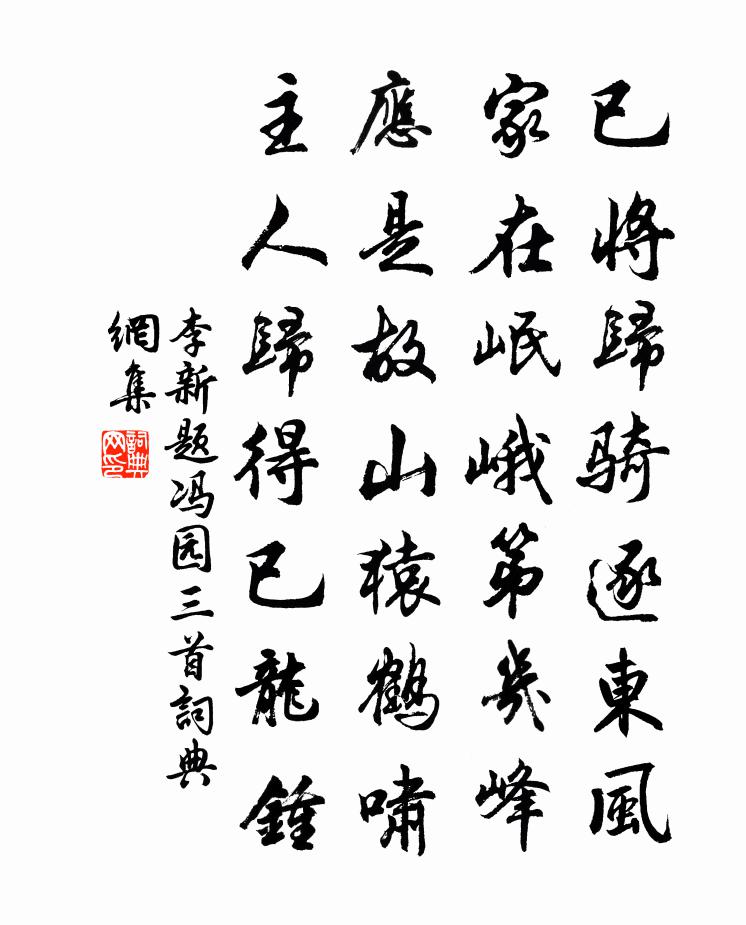 已將歸騎逐東風
家在岷峨第幾峰
應是故山猿鶴嘯
主人歸得已龍鍾
李新题冯园三首詞典
網集
詞典
网印